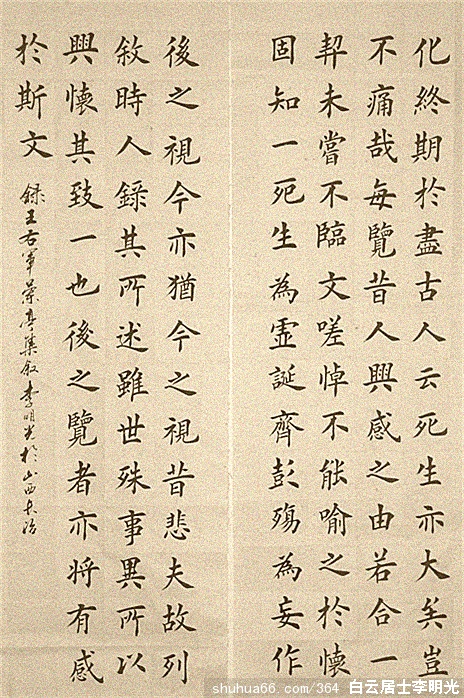 化終期於盡古人云死生亦大矣豈
不痛哉每覽昔人興感之由若合一
契未嘗不臨文嗟悼不能喻之於懷
固知一死生為虛誕齊彭殤為妄作
後之視今亦猶今之視昔悲夫故列
敘時人錄其所述雖世殊事異所以
興懷其致一也後之覽者亦將有感
於斯文
錄王右軍蘭亭集叙李明光於山西長治
shuhua66.com/364 白云居士李明光